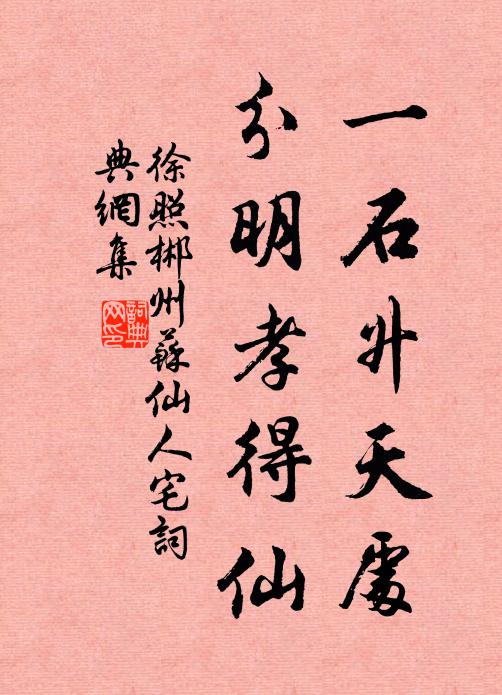 一石升天處
分明孝得仙
徐照郴州蘇仙人宅詞
典網集
詞典
网印